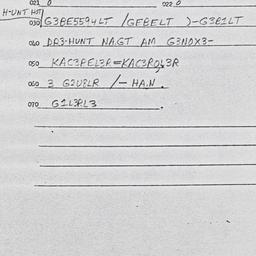 021 0 022 0
H-UNT HOT/
030 G3BE5594LT /GEBELT )-G3B1LT
040 DR3-HUNT NA.GT AM G3NOX3-
050 KAC3PEL3R=KAC3POL3R
060 3 G2UBLR /- HA.N.
070 G1L3RL3 .